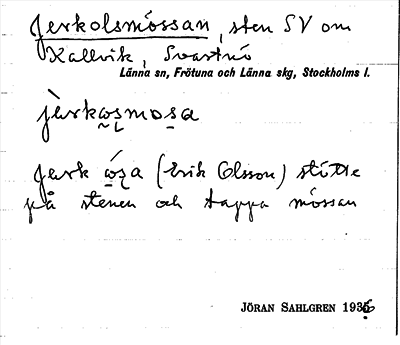 Jerkolsmössan, sten SV om
Kallvik, Svartnö
Länna sn, Frötuna och Länna skg, Stockholms l.
jèrkosmosa
Jerk óza (Erik Olsson) stötte
på stenen och tappa mössan
JÖRAN SAHLGREN 1936